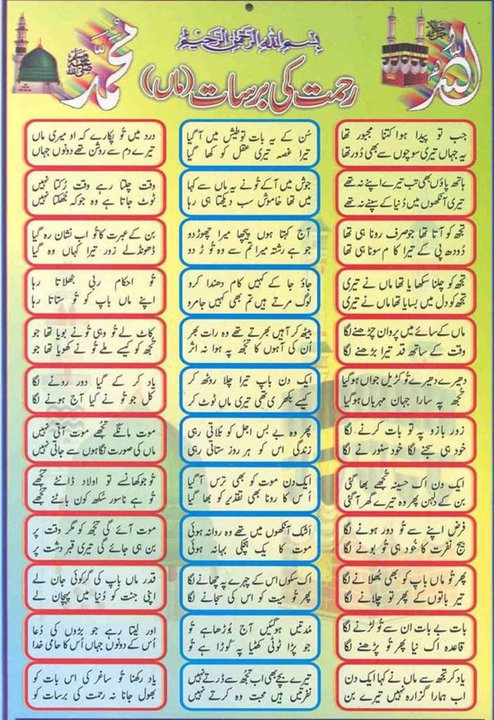 بسم اللہ الرحمٰن الرحیم
اللہ
محمد
رحمت کی برسات (ماں)
جب تو پیدا ہوا کتنا مجبور تھا
یہ جہاں تیری سوچوں سے بھی دُور تھا
ہاتھ پاؤں بھی تب تیرے اپنے نہ تھے
تیری آنکھوں میں دُنیا کے سپنے نہ تھے
تجھ کو آتا تھا جو صرف رونا ہی تھا
دُودھ پی کے تیرا کام سونا ہی تھا
تجھ کو چلنا سکھایا تھا ماں نے تیری
تجھ کو دل میں بسایا تھا ماں نے تیری
ماں کے سائے میں پروان چڑھنے لگا
وقت کے ساتھ قد تیرا بڑھنے لگا
دھیرے دھیرے تُو کڑیل جواں ہو گیا
تجھ پہ سارا جہان مہرباں ہو گیا
زور بازو پہ تو بات کرنے لگا
خود ہی سجنے لگا خود سنورنے لگا
ایک دن اک حسینہ تجھے بھا گئی
بن کے دلہن پھر وہ تیرے گھر آ گئی
فرض اپنے سے تُو دور ہونے لگا
بیج نفرت کا خود ہی تو بونے لگا
پھر تُو ماں باپ کو بھی بُھلانے لگا
تیر باتوں کے پھر تو چلانے لگا
بات بے بات ان سے تُو لڑنے لگا
قاعدہ اک نیا پھر تو پڑھنے لگا
یاد کر تجھ سے ماں نے کہا ایک دن
اب ہمارا گزارہ نہیں تیرے بن
سُن کے یہ بات تو طیش میں آ گیا
تیرا غصہ تیری عقل کو کھا گیا
جوش میں آ کے تُو نے یہ ماں سے کہا
میں تھا خاموش سب دیکھتا ہی رہا
آج کہتا ہوں پیچھا میرا چھوڑ دو
جو ہے رشتہ میرا تم سے وہ توڑ دو
جاؤ جا کے کہیں کام دھندا کرو
لوگ مرتے ہیں تم بھی کہیں جا مرو
بیٹھ کر آہیں بھرتے تھے وہ رات بھر
اُن کی آہوں کا تجھ پہ ہوا نہ اثر
ایک دن باپ تیرا چلا روٹھ کر
کیسے بکھری تھی تیری ماں ٹوٹ کر
پھر وہ بے بس اجل کو بُلاتی رہی
زندگی اس کو ہر روز ستاتی رہی
ایک دن موت کو بھی ترس آ گیا
اُس کا رونا بھی تقدیر کو بھا گیا
اشک آنکھوں میں تھے وہ روانہ ہوئی
موت کا یک ہچکی بہانہ ہوئی
اک سکوں اس کے چہرے پہ چھانے لگا
پھر تُو میت کو اس کی سجانے لگا
مُدتیں ہو گئیں آج بُوڑھا ہے تُو
جو پڑا ٹوٹی کھٹیا پہ کُوڑا ہے تُو
تیرے بچے بھی اب تجھ سے ڈرتے نہیں
نفرتیں ہیں محبت وہ کرتے نہیں
درد میں تُو پکارے کہ او میری ماں
تیرے دم سے روشن تھے دونوں جہاں
وقت چلتا رہے وقت رُکتا نہیں
ٹوٹ جاتا ہے وہ جو کہ جُھکتا نہیں
بن کے عبرت کا تُو اب نشان رہ گیا
ڈھونڈ لے زور تیرا کہاں وہ گیا
تُو احکامِ ربی بُھلاتا رہا
اپنے ماں باپ کو تُو ستاتا رہا
کاٹ لے تُو وہی تُو نے بویا تھا جو
تجھ کو کیسے ملے تُو نے کھویا تھا جو
یاد کر کے گیا دور رونے لگا
کل جو تُو نے کیا آج ہونے لگا
موت مانگے تجھے موت آتی نہیں
ماں کی صورت نگاہوں سے جاتی نہیں
تُو جو کھانسے تو اولاد ڈانٹے تجھے
تو ہے ناسور سکھ کون بانٹے تجھے
موت آئے گی تجھ کو مگر وقت پر
بن ہی جائے گی تیری قبر وقت پر
قدر ماں باپ کی گر کوئی جان لے
اپنی جنت کو دُنیا میں پہچان لے
اور لیتا رہے جو بڑوں کی دُعا
اُس کے دونوں جہاں اُس کا حامی خدا
یاد رکھنا تُو ساغر کی اس بات کو
بھول جانا نہ رحمت کی برسات کو